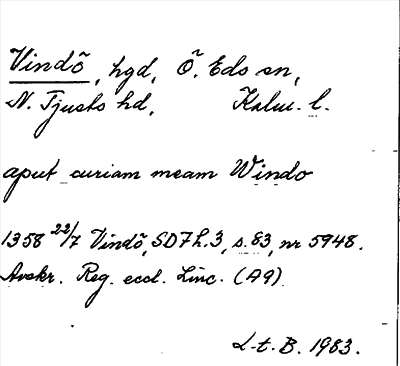 Vindö, hgd, Ö. Eds sn,
N. Tjusts hd, Kalm. l.
aput curiam meam Windo
1358 22/7 Vindö, SD7h.3, s.83, nr 5948.
Avskr. Reg. eccl. Linc. (A9)
L-t. B. 1983.